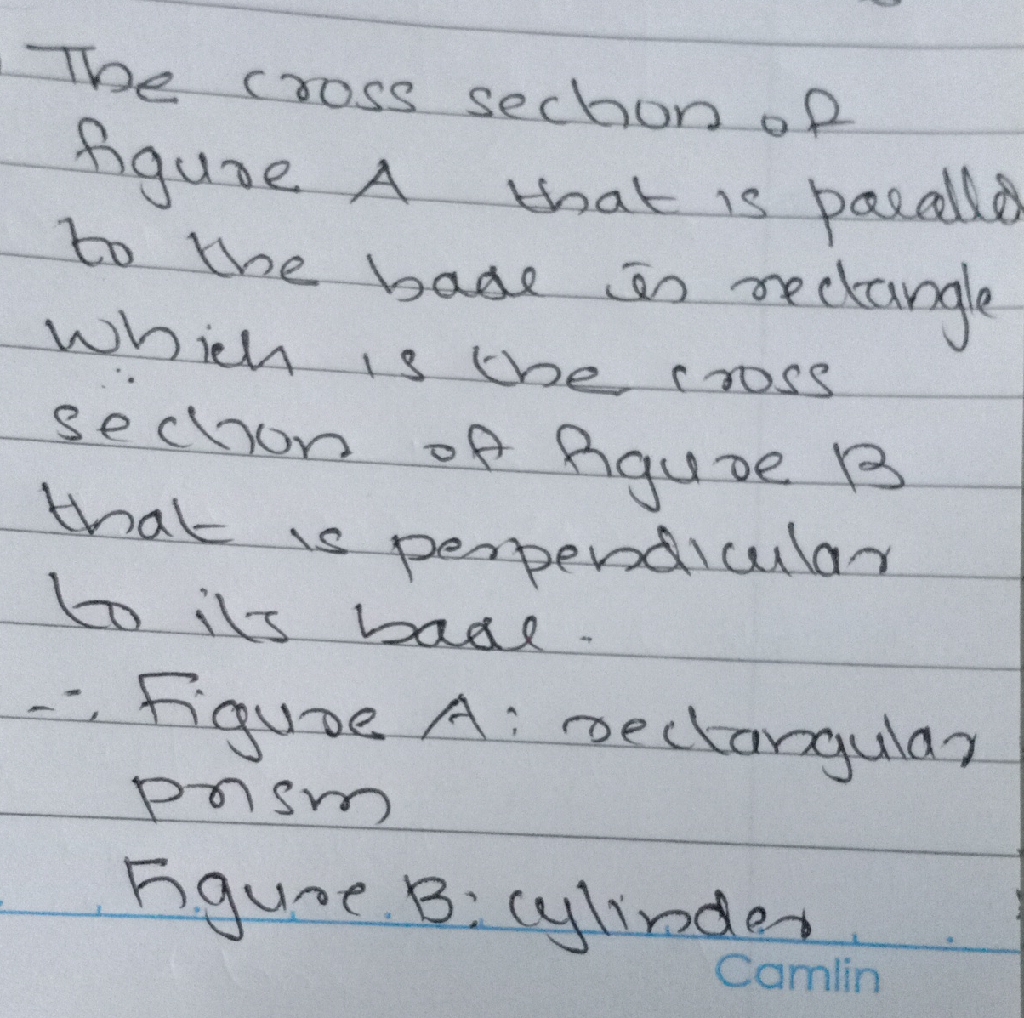 The cross section of
figure A that is parallel
to the base is rectangle
which is the cross
section of figure B
that is perpendicular
to its base.
∴ Figure A: rectangular
prism
Figure B: cylinder
Camlin